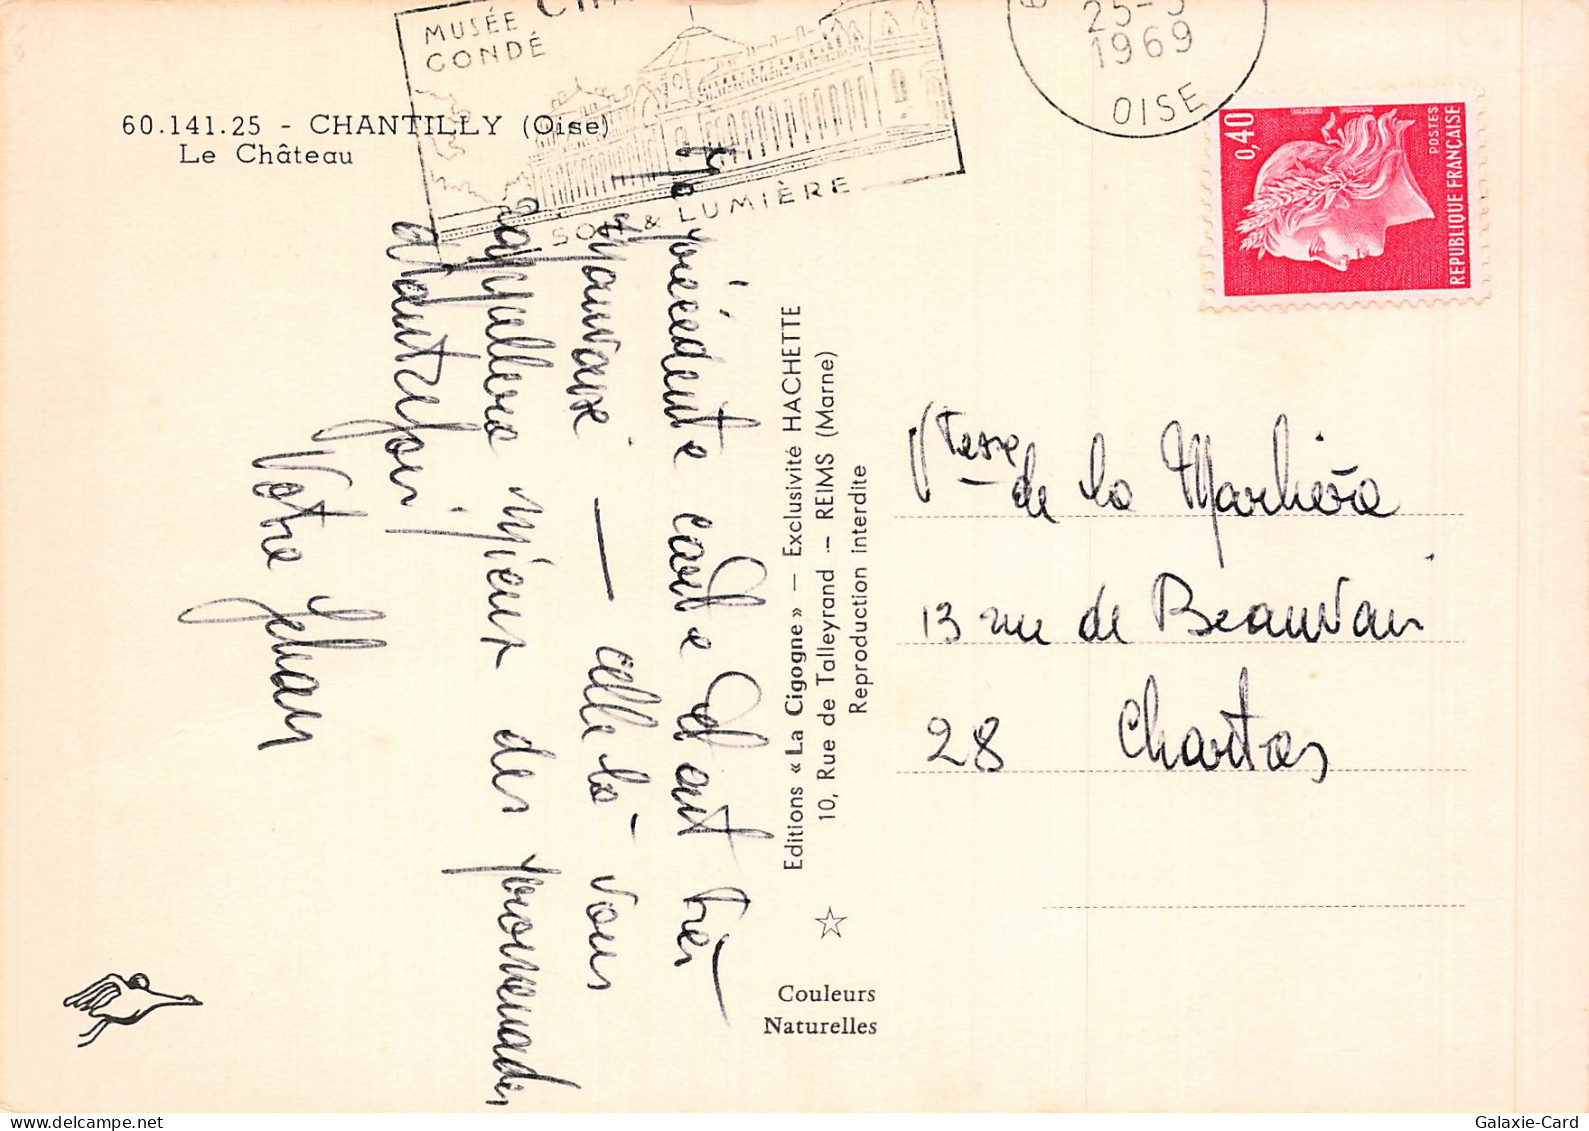 MUSÉE
CONDÉ
SON & LUMIÈRE
1969
OISE
0,40
POSTES
REPUBLIQUE FRANÇAISE
60.141.25 - CHANTILLY (Oise)
Le Château
Ma précédente carte était très
mauvaise — celle là vous
rappellera mieux des promenades
d'autrefois
Votre Jehan
Editions « La Cigogne » — Exclusivité HACHETTE
10, Rue de Talleyrand — REIMS (Marne)
Reproduction interdite
Couleurs
Naturelles
Vtesse de la
13 rue de Beauvais
28 Chartres
Galaxie-Card